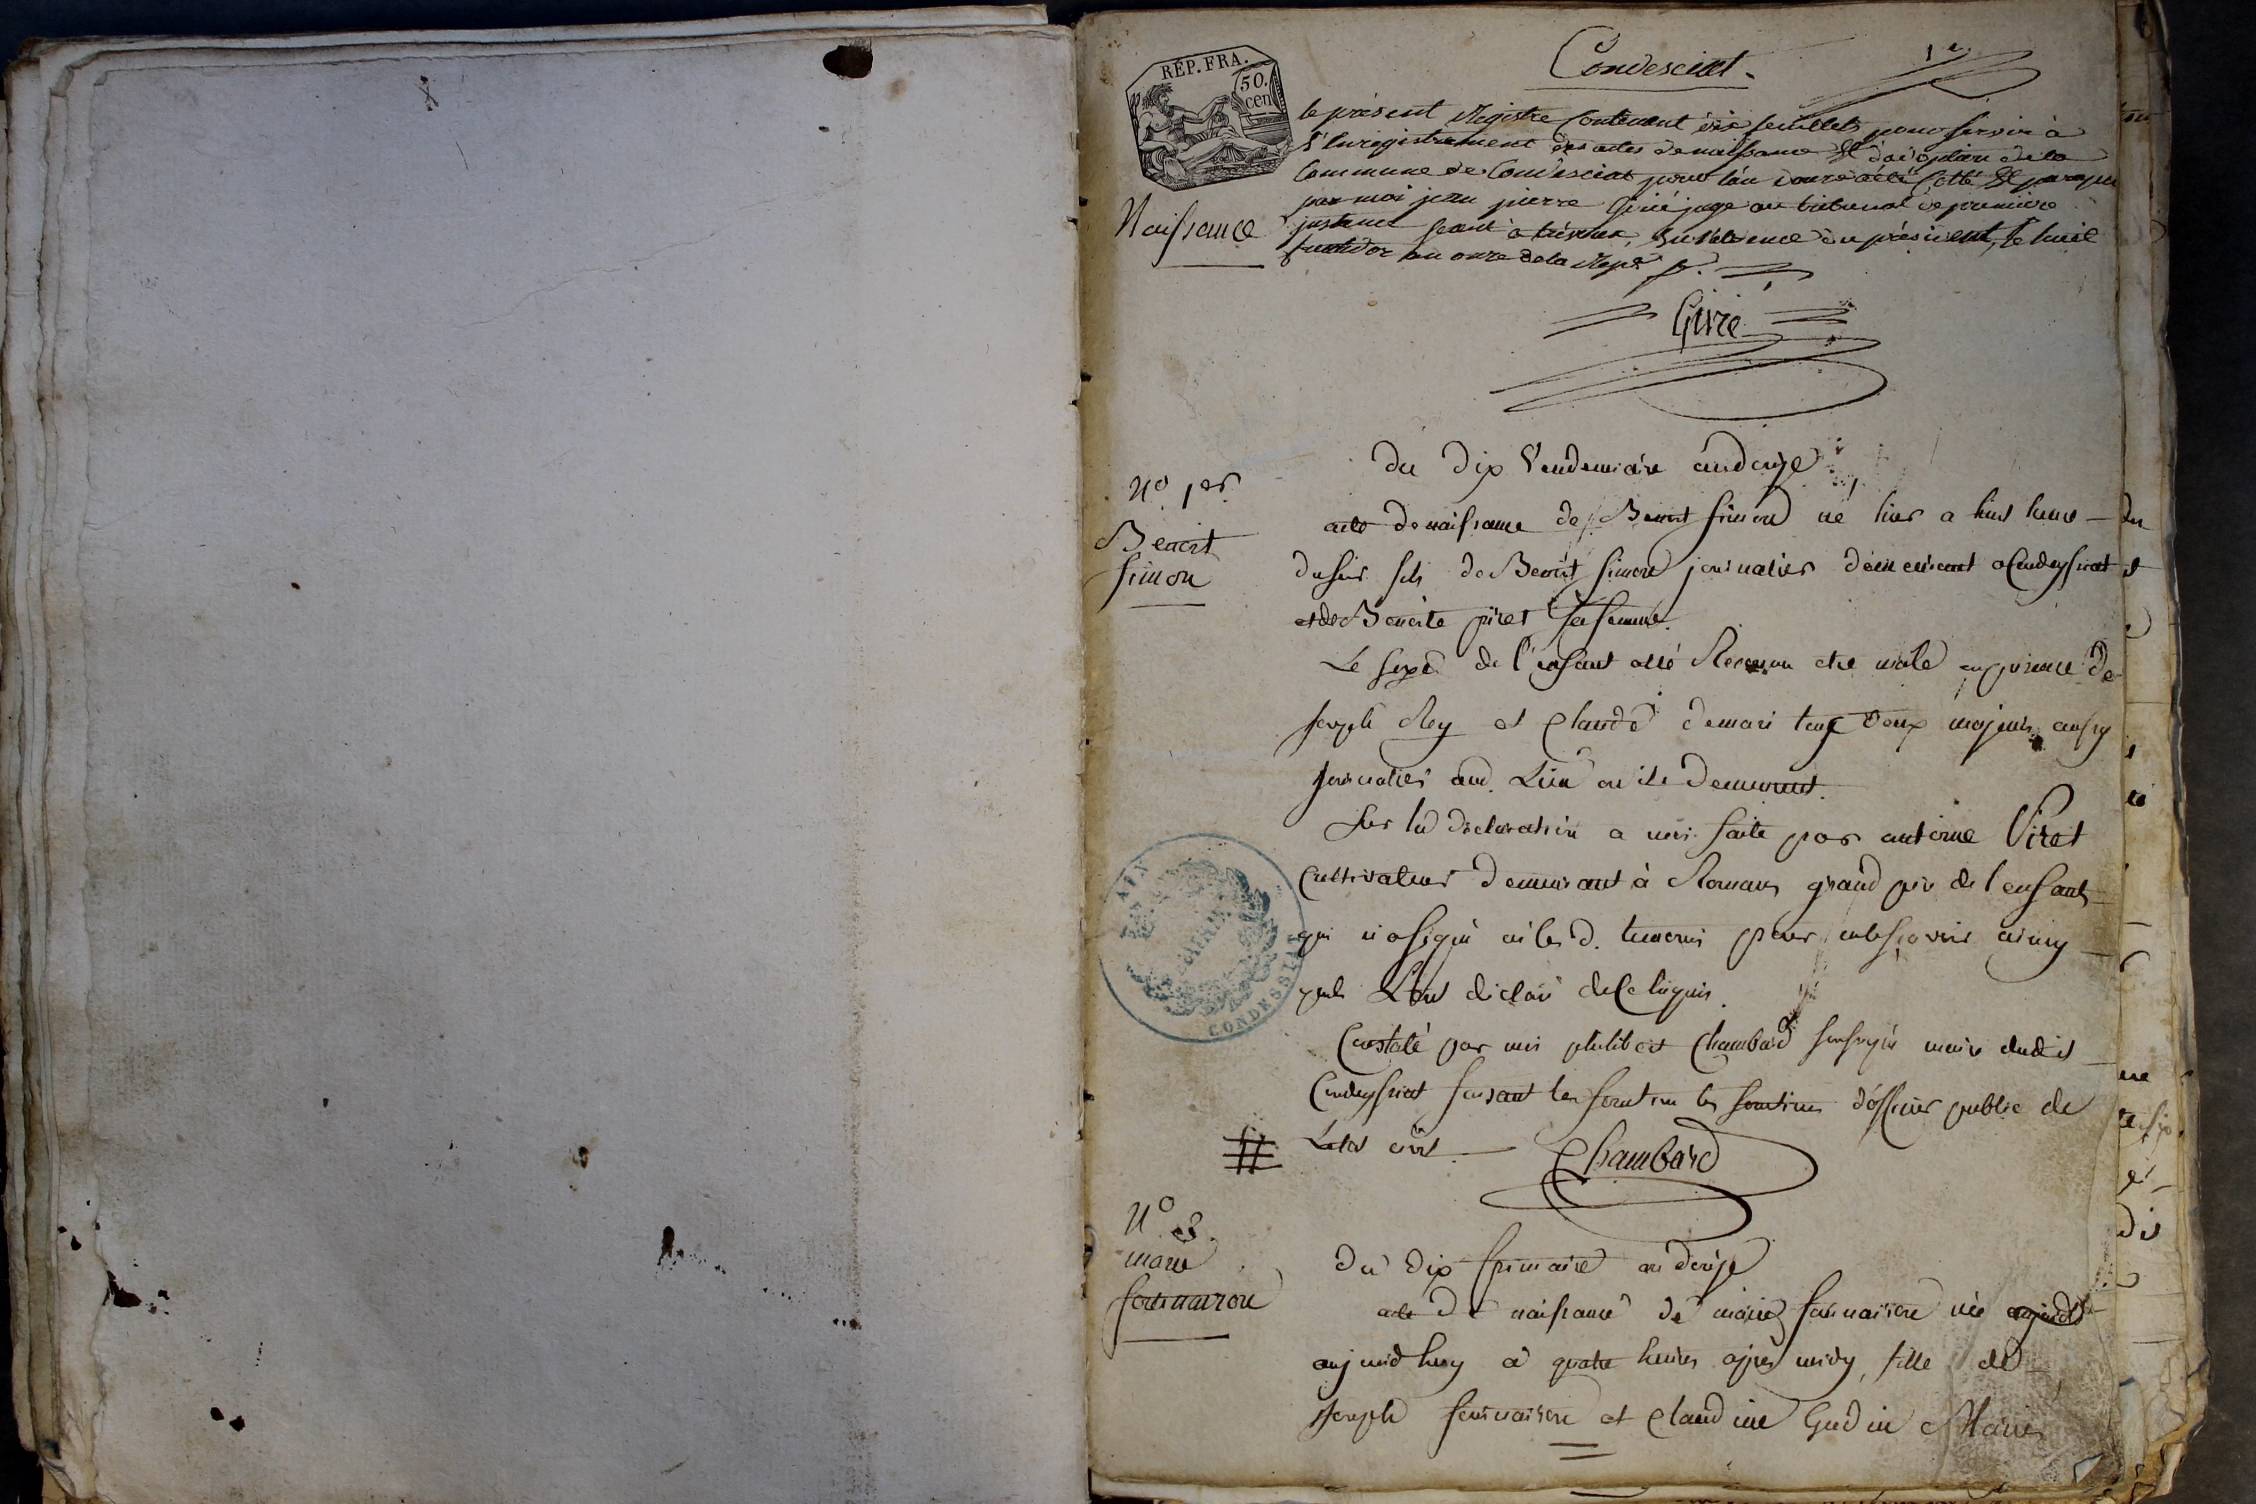 Condesciat.
1er
RÉP. FRA.
50.
cen
le présent Registre Contenant six feuillets pour servir à
l'Enregistrement des actes de naissance et d'adoption de la
Commune de Condesciat pour l'an douze a été Cotté et paraphé
par moi jean pierre Givré juge au tribunal de premiere
instance seant à trévoux, en l'absence du président, le huit
fructidor an onze de la Repe f.
Naissance
Givré
Du Dix Vendemiaire an douze
No. 1er.
Benoit
Simon
acte de naissance de Benoit Simon né hier a huit heure
du soir fils de Benoit Simon journalier demeurant a Condeyssiat
et de Benoite piret sa femme.
Le sexe de l'enfant a été Reconnu etre male en presence de
Joseph Rey et Claude demari tous deux majeurs aussy
journalier aud. Lieu ou ils demeurent.
Sur la declaration a moi faite par antoine Piret
Cultivateur demeurant à Romans grand pere de l'enfant
qui n'a signé ni les d. temoins pour ne le sçavoir ainsy
quils L'ont declaré de ce Enquis.
Constaté par moi philibert Chambard soussigné maire dudit
Condeyssiat faisant les fonction les fonctions d'officier public de
L'etat civil
Chambard
AIN
CONDESSIAT
No 2.
marie
fournairon
Du dix frimaire an douze
acte de naissance de marie fournairon née
aujourd huy à quatre heures apres midy, fille de
Joseph fournairon et Claudine Gudin Mariés